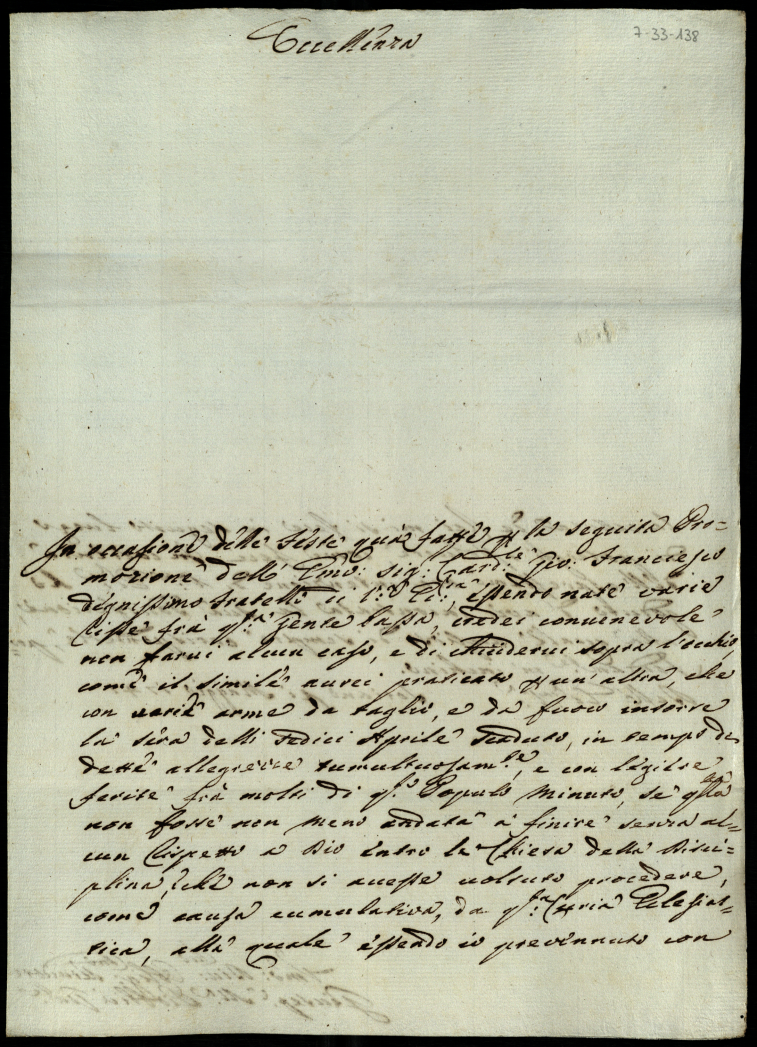 Eccellenza
7-33-138
In occasione delle feste quà fatte p la seguita Pro=
mozione dell' Emo: sig: Card:le Gio: Francesco
dignissimo fratello di V:ra E:za, essendo nate varie
risse frà q:ta gente bassa, credei convenevole
non farvi alcun caso, e di chiudervi sopra l'occhio,
come il simile avrei praticato p un' altra, che
con varie arme da taglio, e da fuoco insorse
la sera delli sedici Aprile scaduto, in tempo di
dette allegrezze tumultuosam:te, e con leggiere
ferite frà molti di q:to Popolo minuto, se q:lla
non fosse non meno andata à finire senza al=
cun rispetto a Dio entro la Chiesa della Disci=
plina, che non si avesse voluto procedere,
come causa cumulativa, da q:ta Curia Eclesias=
tica, alla quale essendo io prevennuto con